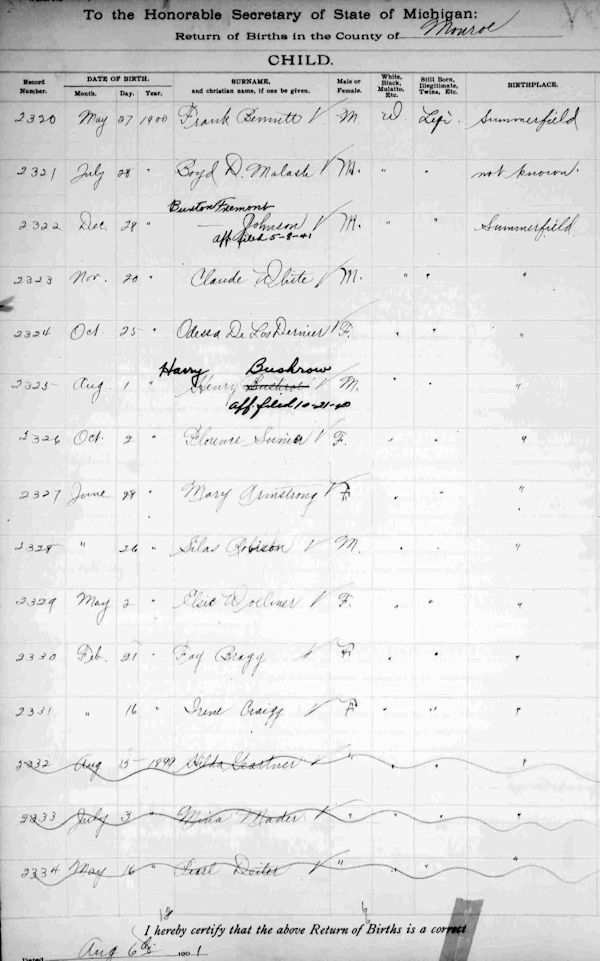 To the Honorable Secretary of State of Michigan:
Return of Births in the County of Monroe
CHILD.
Record Number. DATE OF BIRTH. Month. Day. Year. SURNAME, and christian name, if one be given. Male or Female. White, Black, Mulatto, Etc. Still Born, Illegitimate, Twins, Etc. BIRTHPLACE.
2320 May 27 1900 Frank Bennett √ M Summerfield
2321 July 28 " Boyd D. Malash √ M. " " not known.
Burton Fremont
2322 Dec. 28 " Johnson √ M. " " Summerfield
aff. filed 5-8-41
2323 Nov. 20 " Claude White √ M. " " "
2324 Oct. 25 " Odessa De Los Dernier √ F. " " "
Harry Bushrow
2325 Aug. 1 " Henry √ M. " " "
aff. filed 10-21-40
2326 Oct. 2 " Florence √ F. " " "
2327 June 28 " Mary Armstrong √ F. " " "
2328 " 26 " Silas Robison √ M. " " "
2329 May 2 " Elsie √ F. " " "
2330 Feb. 21 " Fay Bragy √ F. " " "
2331 " 16 " Irene Craigg √ F. " " "
2332 Aug 15 1899 Hilda Gartner √ " " " "
2333 July 3 " Mina Mader √ " " " "
2334 May 16 " Pearl Deiter √ " " " "
12 6
I hereby certify that the above Return of Births is a correct
Dated Aug 6th 1901